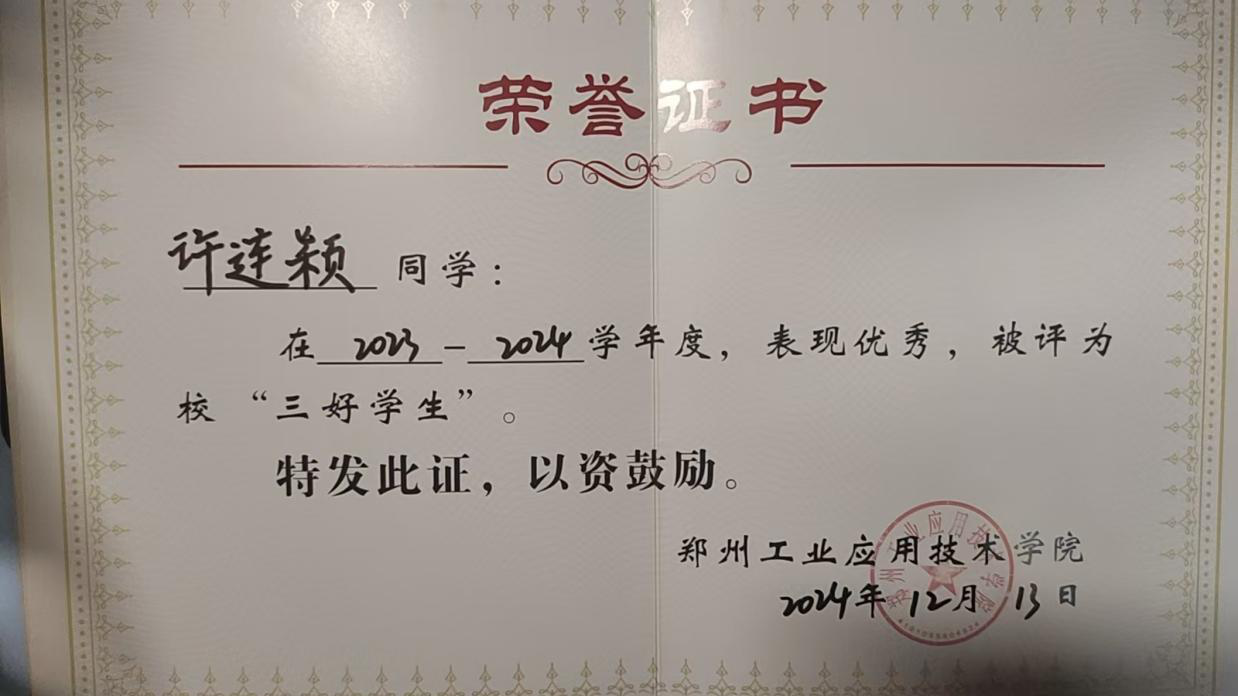 荣誉证书
许连颖 同学：
在 2023 - 2024 学年度，表现优秀，被评为
校“三好学生”。
特发此证，以资鼓励。
郑州工业应用技术学院
2024年 12月 13日
郑州工业应用技术学院